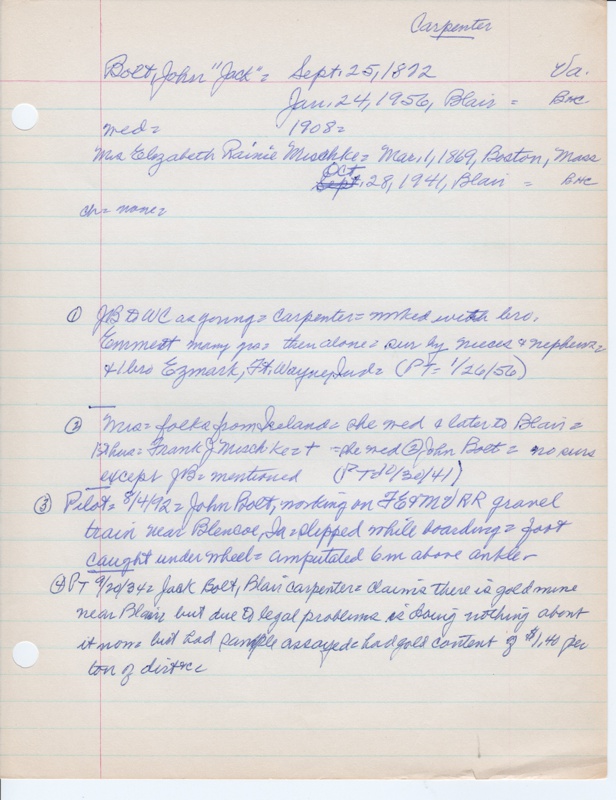 Carpenter
Bolt, John "Jack" = Sept. 25, 1872 Va.
Jan. 24, 1956, Blair = BHC
med = 1908 =
Mrs Elizabeth Rainie Mischke = Mar. 1, 1869, Boston, Mass
Oct.
Sept. 28, 1941, Blair = BHC
ch = none =
① JB to WC as young = carpenter = worked with bro.
Emmett many yrs = then alone = sur by nieces & nephews =
& 1 bro Ezmark, Ft. Wayne, Ind = (PT = 1/26/56)
② Mrs = folks from Iceland = she med & later to Blair =
1st hus = Frank J Mischke = + = she med ② John Bolt = no surs
except JB = mentioned (PT 10/30/41)
③ Pilot = 8/4/92 = John Bolt, working on FE & MV RR gravel
train near Blencoe, Ia = slipped while boarding = foot
caught under wheel = amputated 6 in above ankle -
④ PT 9/20/34 = Jack Bolt, Blair carpenter = claims there is gold mine
near Blair but due to legal problems is doing nothing about
it now = but had sample assayed = had gold content of $1.40 per
ton of dirt =